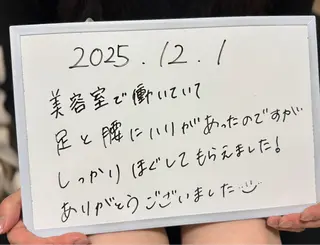 2025.12.1
美容室で働いていて
足と腰にハリがあったのですが
しっかりほぐしてもらえました!
ありがとうございました